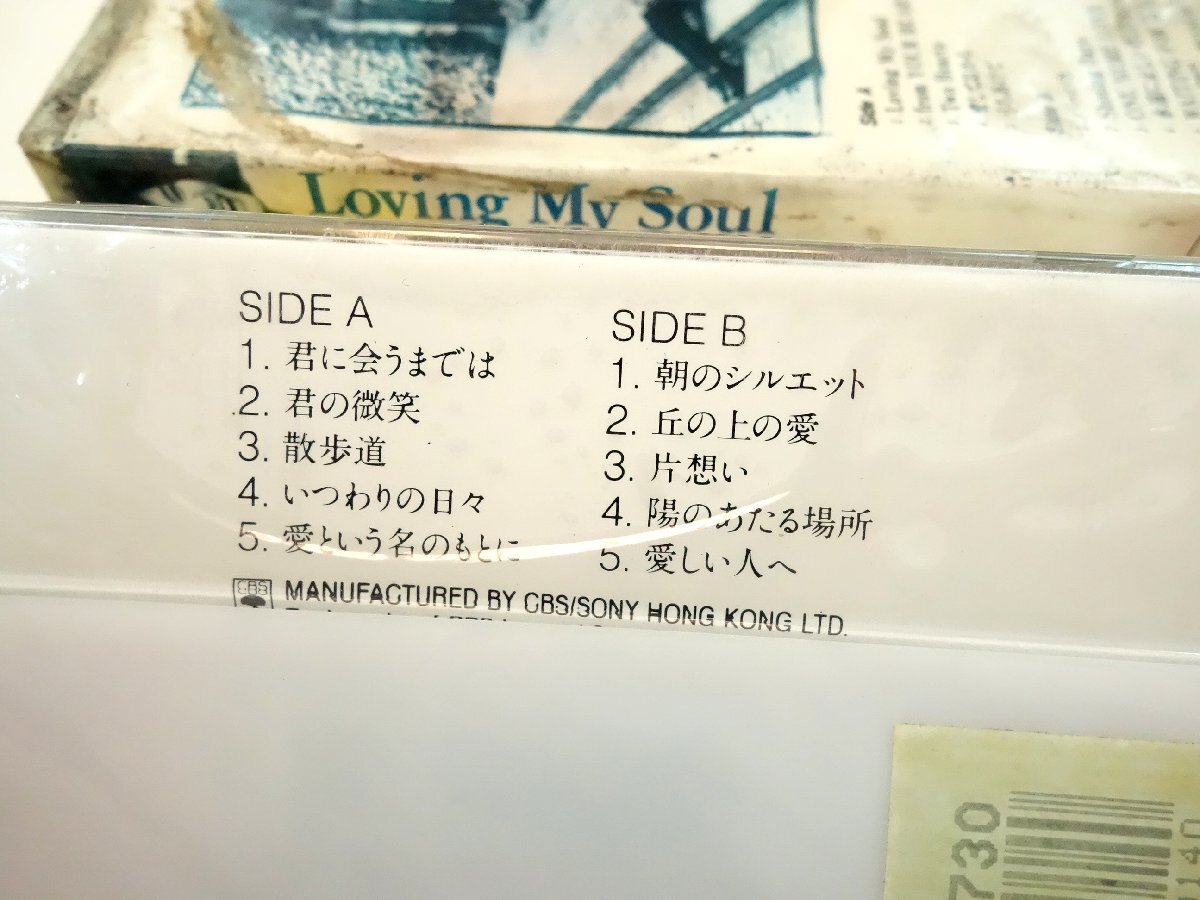 Side A
1 Loving My Soul
Loving My Soul
SIDE A
1. 君に会うまでは
2. 君の微笑
3. 散歩道
4. いつわりの日々
5. 愛という名のもとに
SIDE B
1. 朝のシルエット
2. 丘の上の愛
3. 片想い
4. 陽のあたる場所
5. 愛しい人へ
CBS
MANUFACTURED BY CBS/SONY HONG KONG LTD.
730
1140